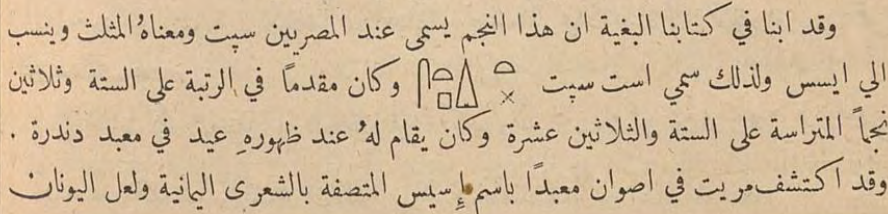 وقد ابنا في كتابنا البغية ان هذا النجم يسمى عند المصريين سبت ومعناهُ المثلث وينسب
الي ايسس ولذلك سمي است سبت وكان مقدماً في الرتبة على الستة وثلاثين
نجماً المتراسة على الستة والثلاثين عشرة وكان يقام لهُ عند ظهورهِ عيد في معبد دندرة .
وقد اكتشف مريت في اصوان معبدًا باسم إسيس المتصفة بالشعرى اليمانية ولعل اليونان